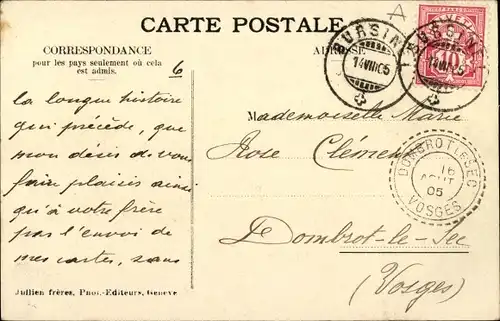 CARTE POSTALE
CORRESPONDANCE
pour les pays seulement où cela
est admis.
6
A
ADRESSE
BURSINEL
14 VIII 05
BURSINEL
14 VIII 05
10
la longue histoire
qui précède, que
mon désir de vous
faire plaisir ainsi
qu'à votre frère
par l'envoi de
mes cartes, sans
Mademoiselle Marie
Rose Clément
Dombrot-le-Sec
(Vosges)
DOMBROT LE SEC
16
AOUT
05
VOSGES
Jullien frères, Phot.-Editeurs, Genève